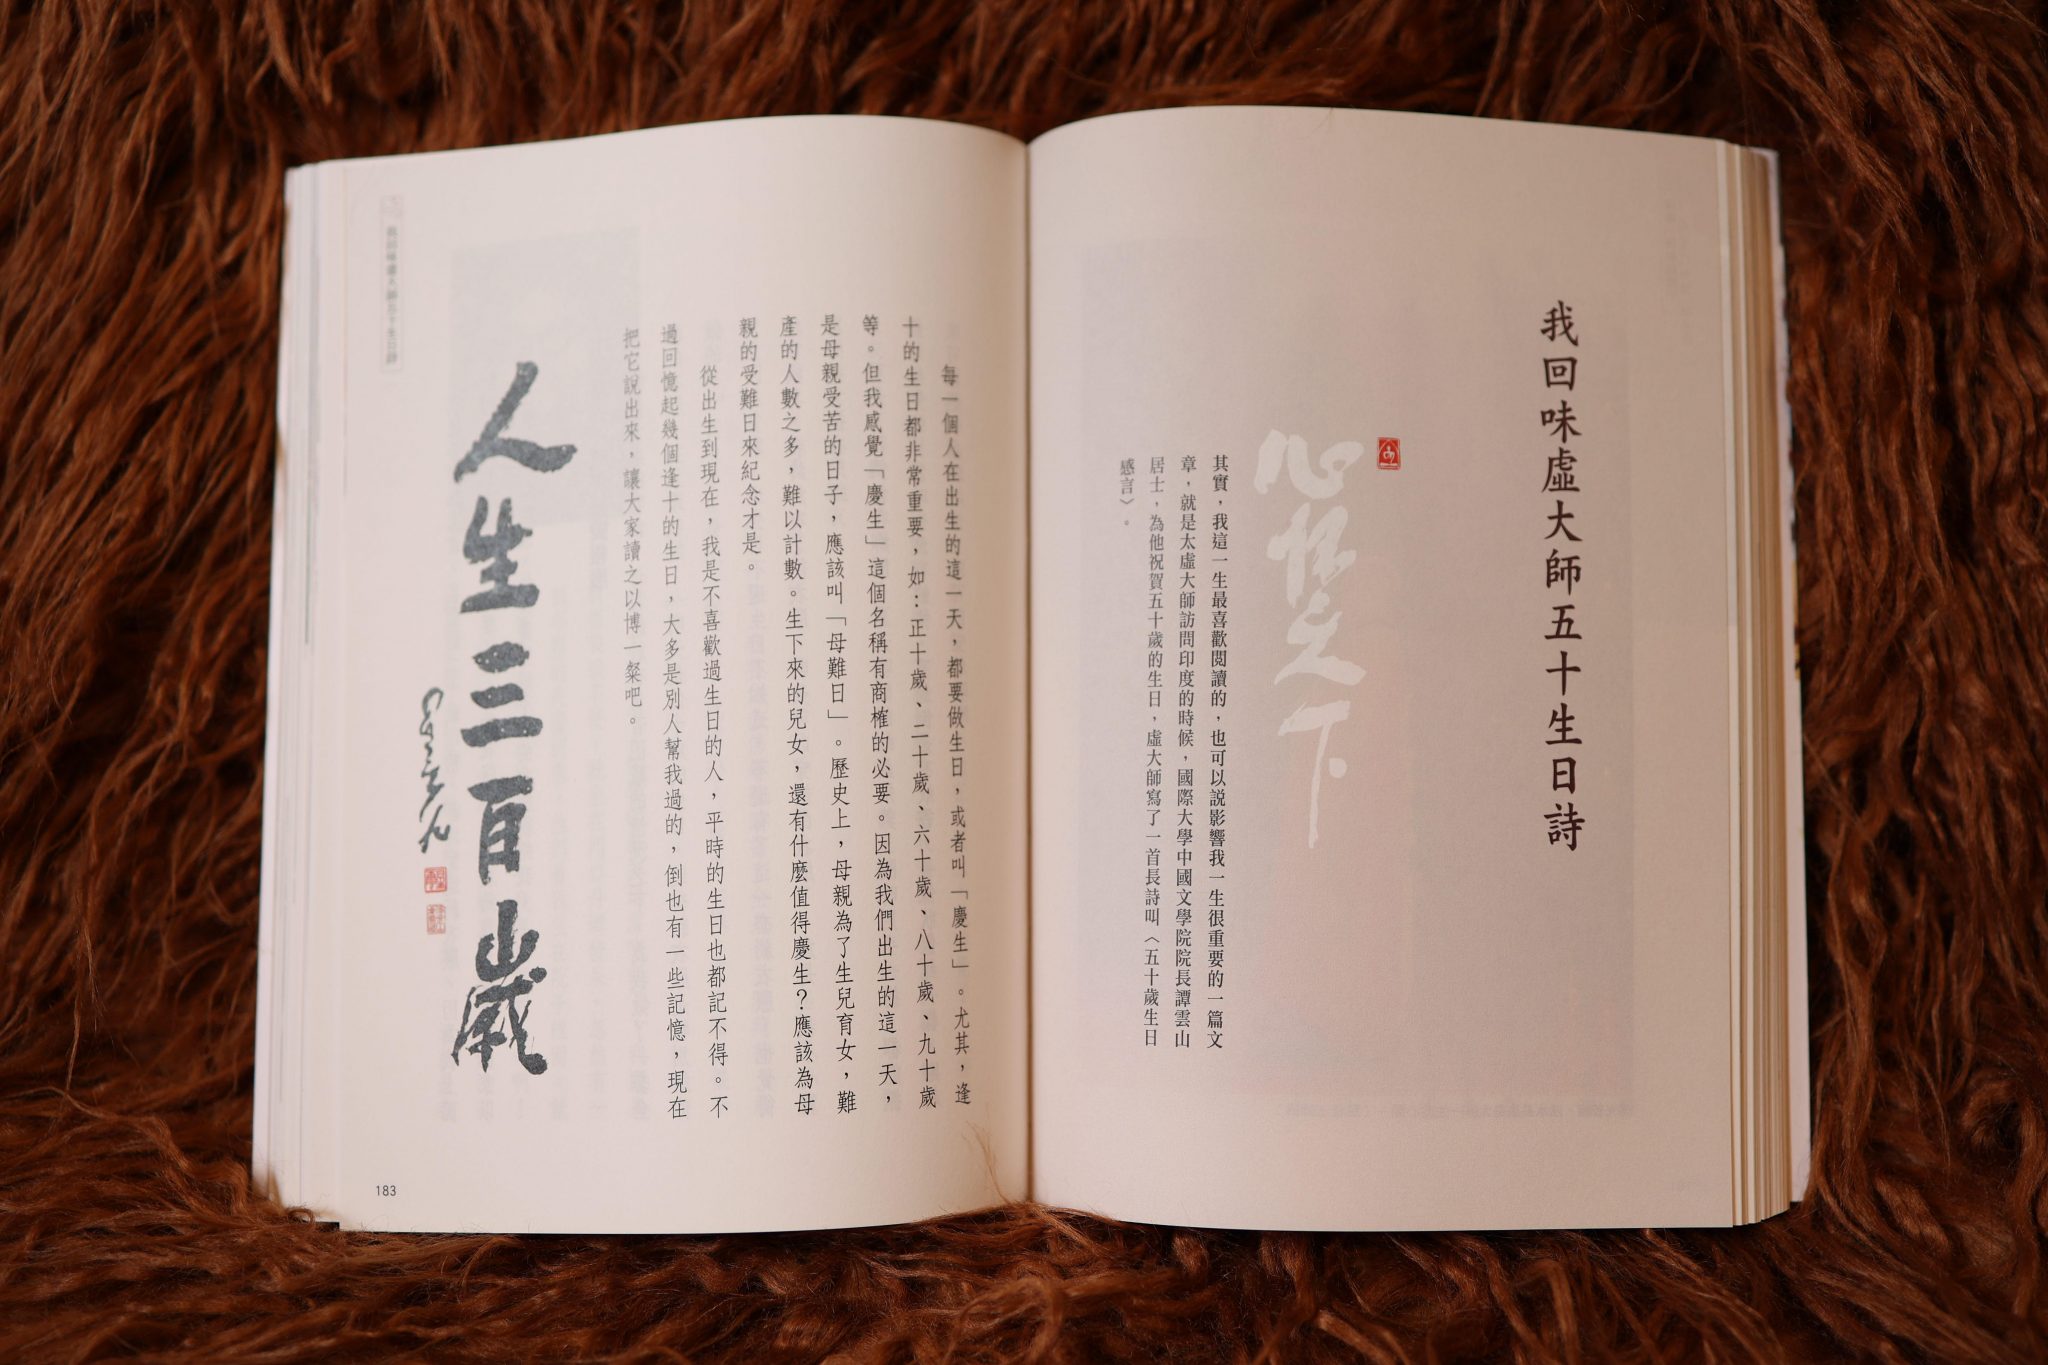 我回味虛大師五十生日詩
心懷天下
其實，我這一生最喜歡閱讀的，也可以說影響我一生很重要的一篇文
章，就是太虛大師訪問印度的時候，國際大學中國文學院院長譚雲山
居士，為他祝賀五十歲的生日，虛大師寫了一首長詩叫〈五十歲生日
感言〉。
每一個人在出生的這一天，都要做生日，或者叫「慶生」。尤其，逢
十的生日都非常重要，如：正十歲、二十歲、六十歲、八十歲、九十歲
等。但我感覺「慶生」這個名稱有商榷的必要。因為我們出生的這一天，
是母親受苦的日子，應該叫「母難日」。歷史上，母親為了生兒育女，難
產的人數之多，難以計數。生下來的兒女，還有什麼值得慶生？應該為母
親的受難日來紀念才是。
從出生到現在，我是不喜歡過生日的人，平時的生日也都記不得。不
過回憶起幾個逢十的生日，大多是別人幫我過的，倒也有一些記憶，現在
把它說出來，讓大家讀之以博一粲吧。
人生三百歲
我回味虛大師五十生日詩
183